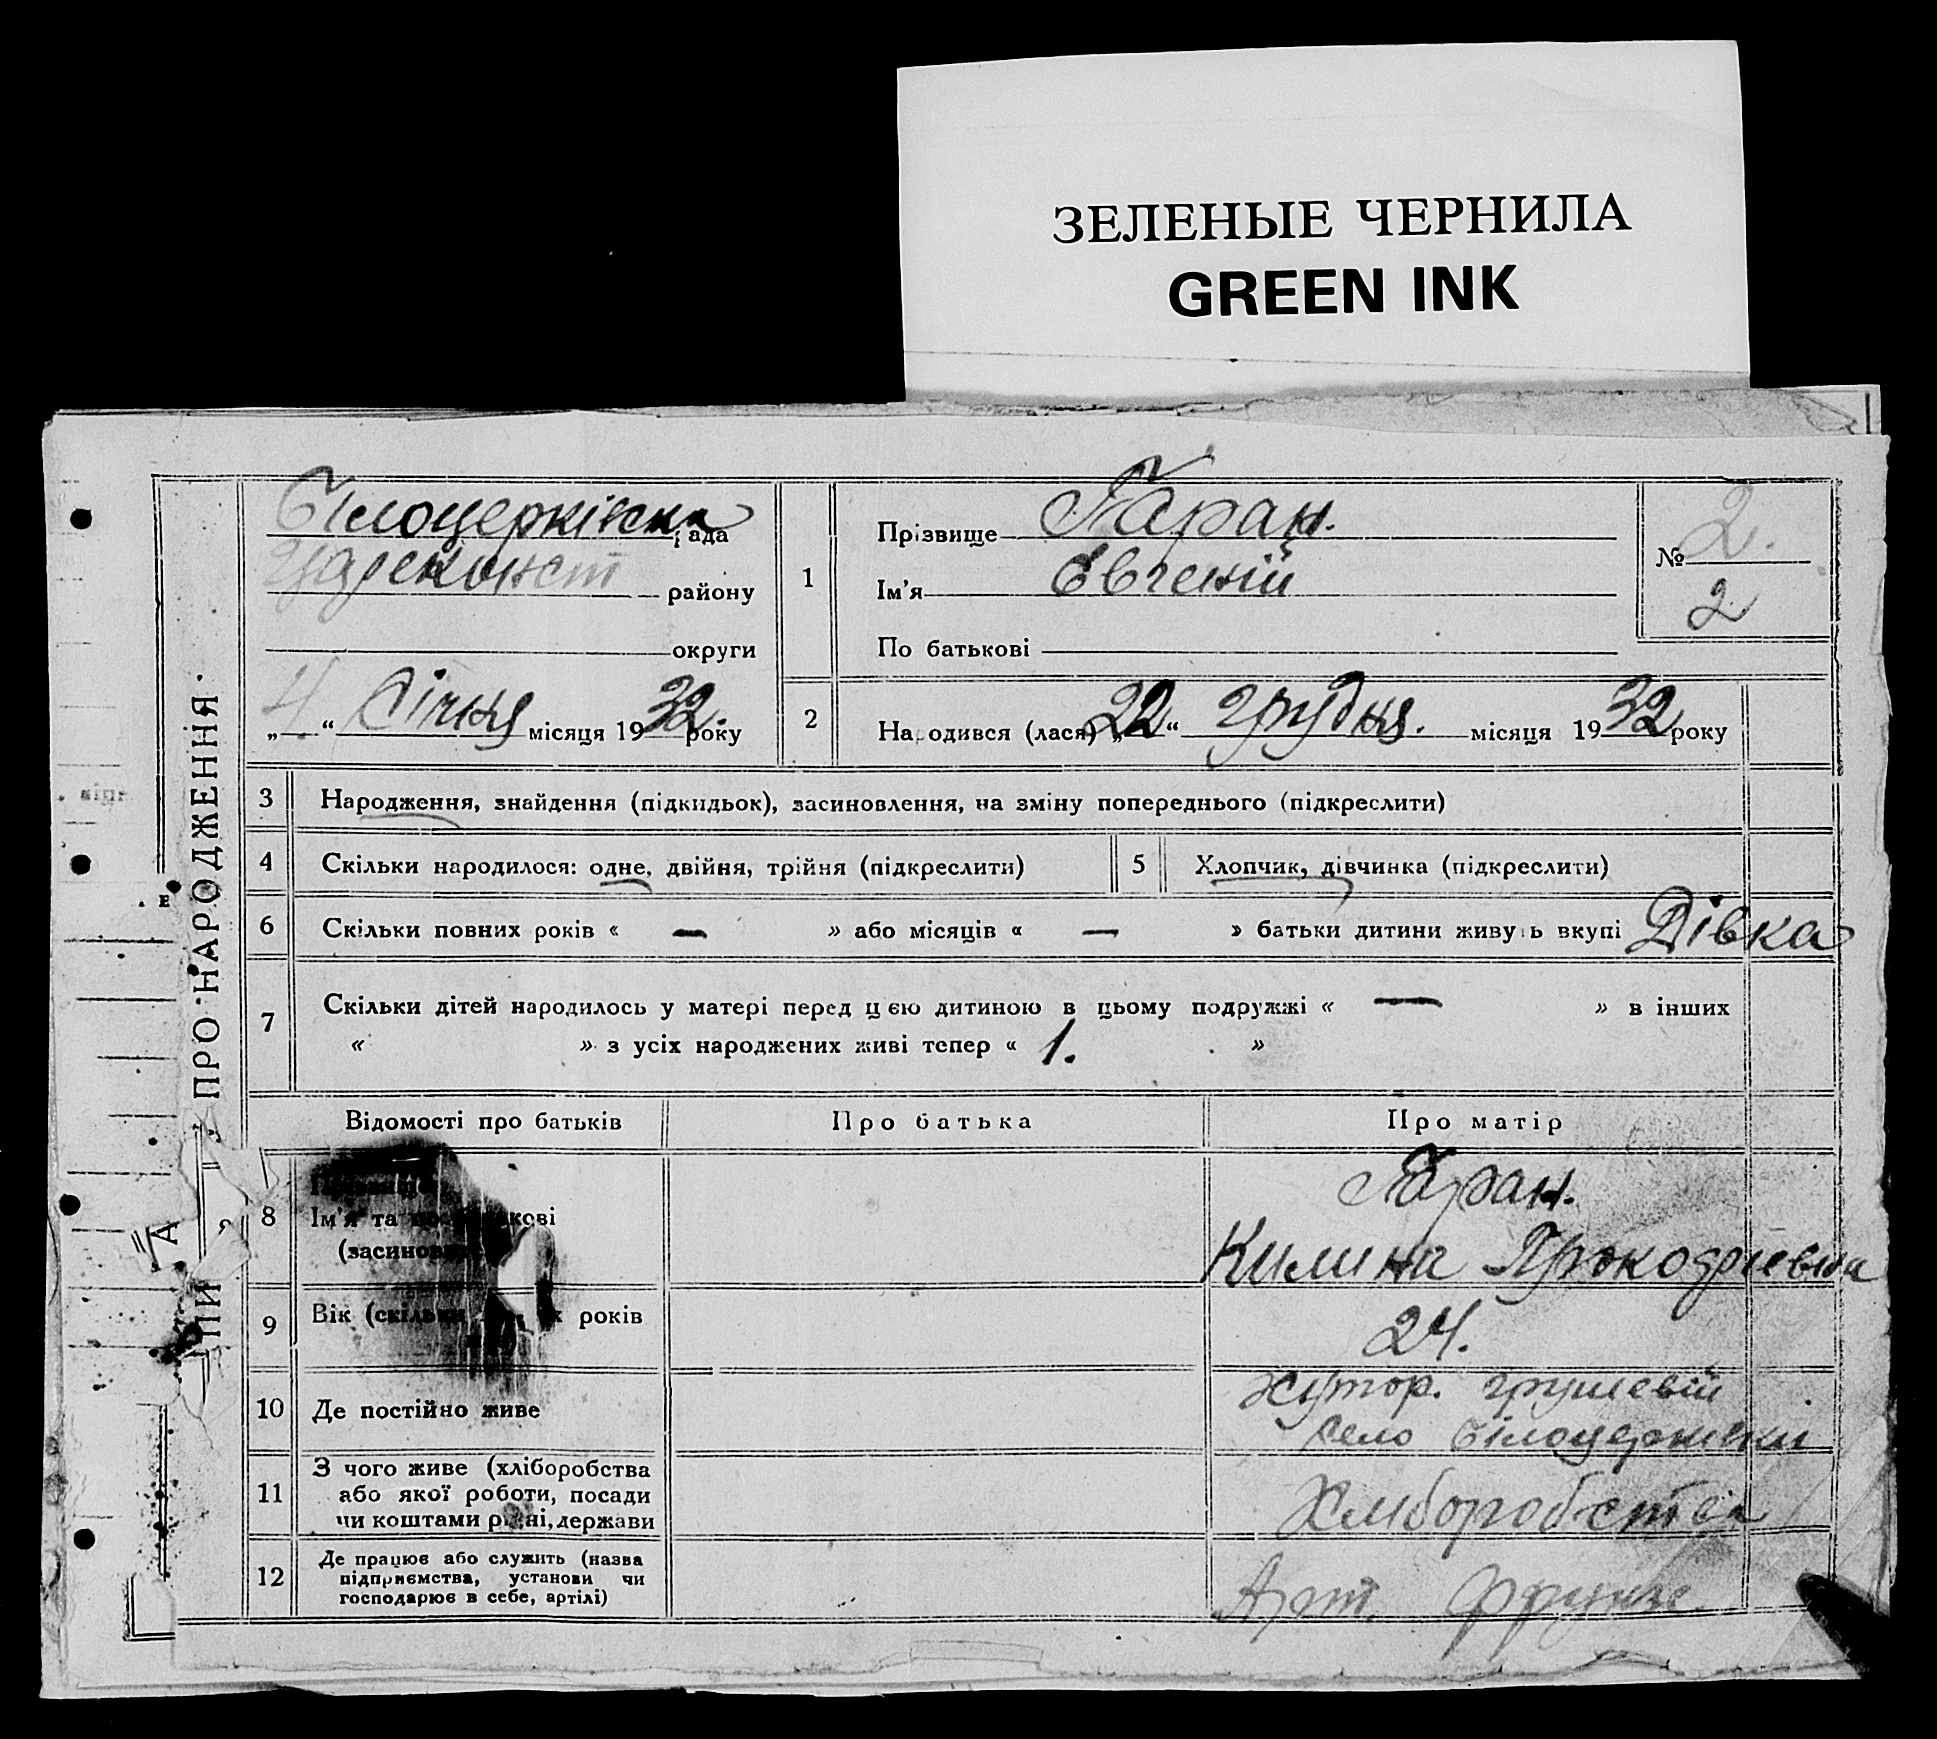 ЗЕЛЕНЫЕ ЧЕРНИЛА
GREEN INK
ПРО НАРОДЖЕННЯ
Білоцерківська рада
району
округи
4 “ Січня місяця 1932 року
1
Прізвище Таран.
Ім'я Євгеній
По батькові
№ 2.
2
2
Народився (лася) „22“ грудня. місяця 1932 року
3 Народження, знайдення (підкидьок), засиновлення, на зміну попереднього (підкреслити)
4 Скільки народилося: одне, двійня, трійня (підкреслити)
5 Хлопчик, дівчинка (підкреслити)
6 Скільки повних років « — » або місяців « — » батьки дитини живуть вкупі Дівка
7 Скільки дітей народилось у матері перед цією дитиною в цьому подружжі « — » в інших
« » з усіх народжених живі тепер « 1. »
Відомості про батьків
Про батька
Про матір
8
Ім'я та
Таран.
Килина Прокофієвна
9 Вік років
24.
10 Де постійно живе
Хутор. Грушевій
село Білоцерківки
11 З чого живе (хліборобства
або якої роботи, посади
чи коштами рідні, держави
Хліборобства
12 Де працює або служить (назва
підприємства, установи чи
господарює в себе, артілі)
Арт. Фрунзе.